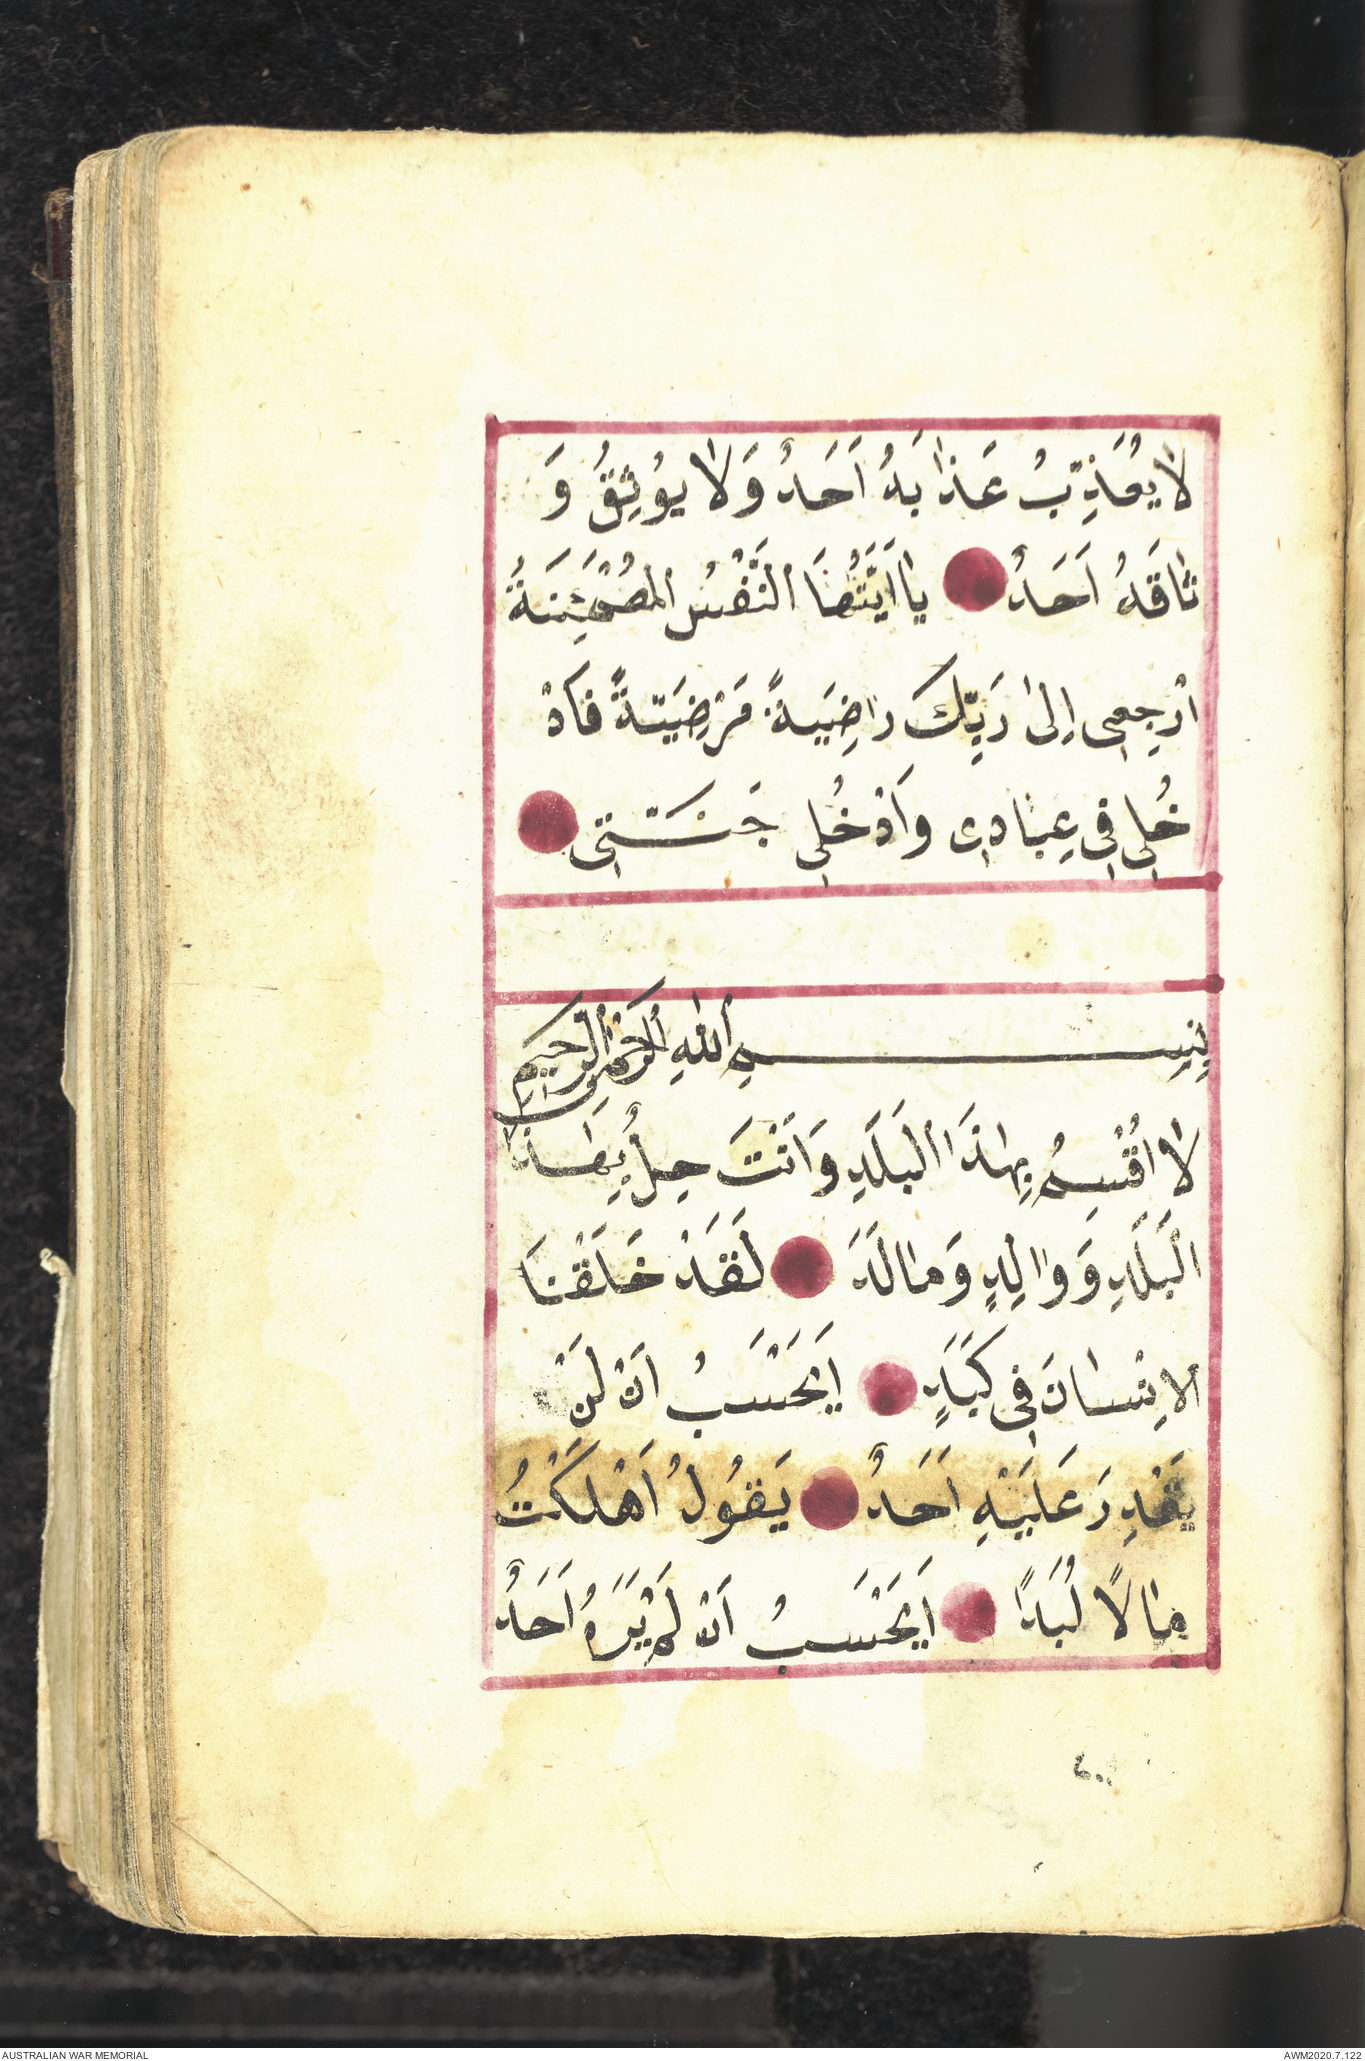 لَا يُعَذِّبُ عَذَابَهُ اَحَدٌ وَلَا يُوثِقُ وَ
ثَاقَهُ اَحَدٌ يَا اَيَّتُهَا النَّفْسُ المُطْمَئِنَةُ
ارْجِعِى اِلٰى رَبِّكِ رَاضِيَةً مَرْضِيَّةً فَادْ
خُلِى فِى عِبَادِى وَادْخُلِى جَنَّتِى
بِسْمِ اللّٰهِ الرَّحْمٰنِ الرَّحِيمِ
لَا اُقْسِمُ بِهٰذَا الْبَلَدِ وَاَنْتَ حِلٌّ بِهٰذَا
الْبَلَدِ وَوَالِدٍ وَمَا لَدَ لَقَدْ خَلَقْنَا
الاِنْسَانَ فِى كَبَدٍ اَيَحْسَبُ اَنْ لَنْ
يَقْدِرَ عَلَيْهِ اَحَدٌ يَقُولُ اَهْلَكْتُ
مَالًا لُبَدًا اَيَحْسَبُ اَنْ لَمْ يَرَهُ اَحَدٌ
AUSTRALIAN WAR MEMORIAL
AWM2020.7.122